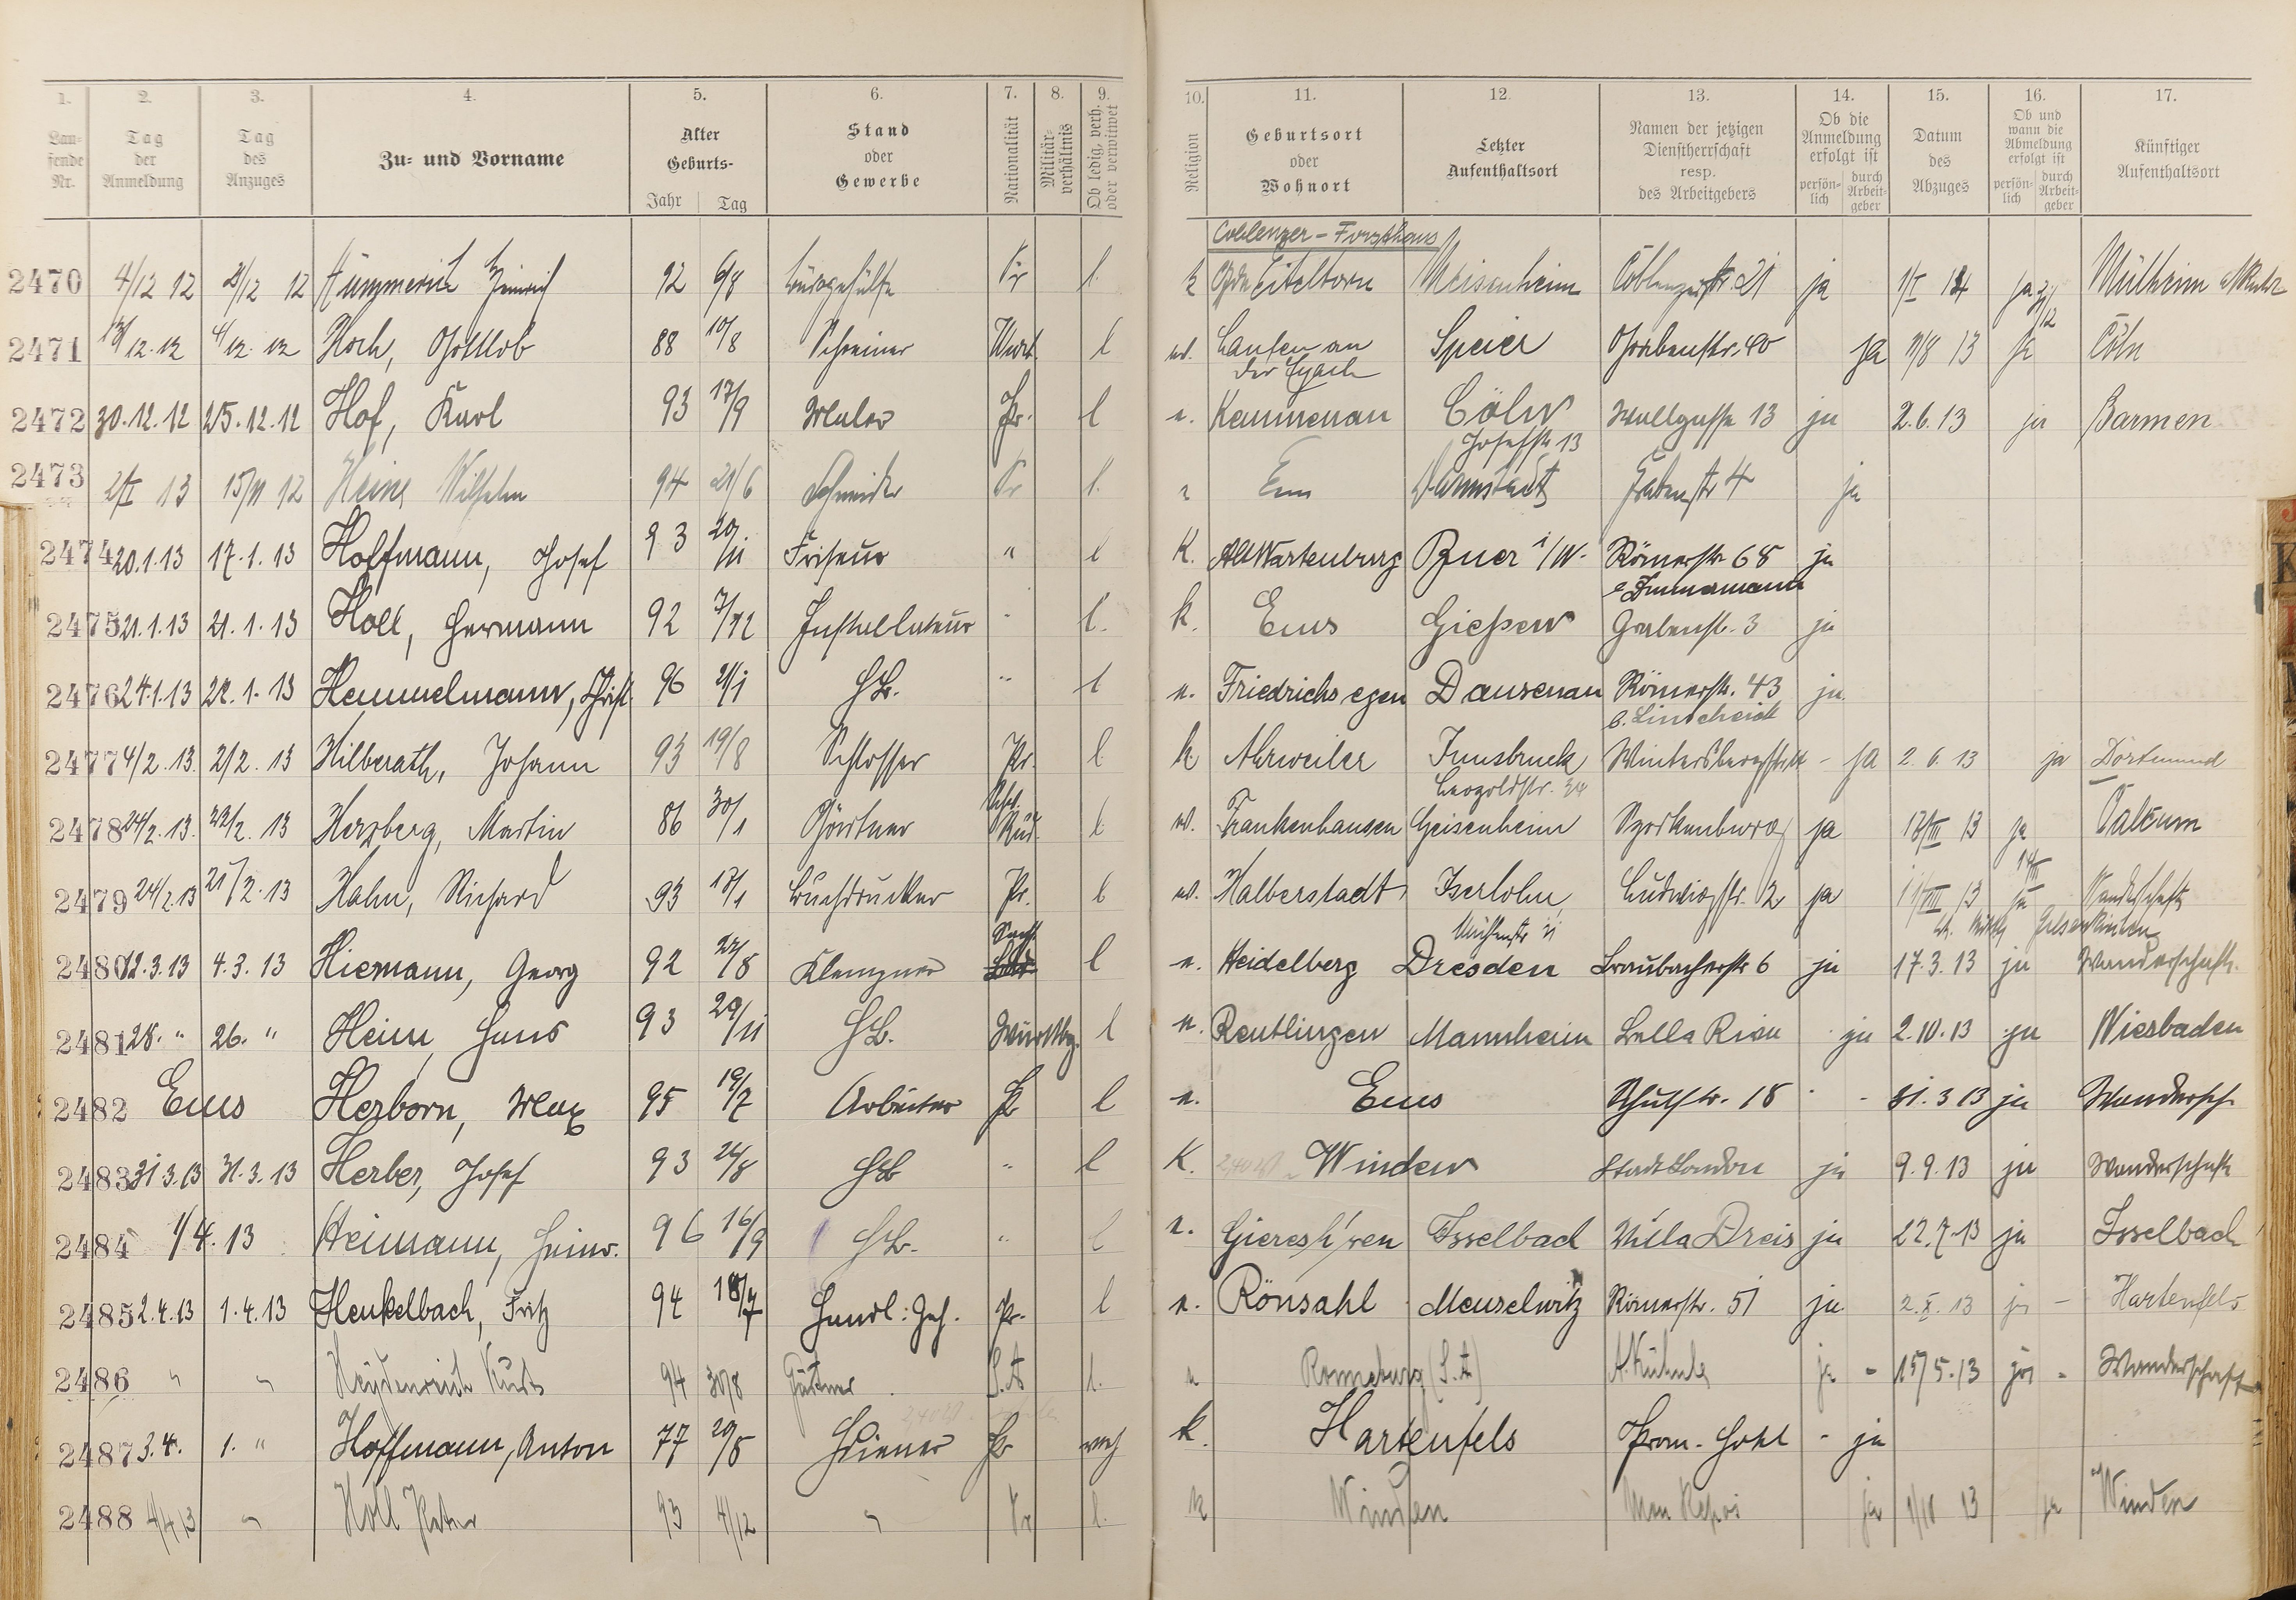 1. 2. 3. 4. 5. 6. 7. 8. 9. 10. 11. 12. 13. 14. 15. 16. 17.
Lau-fende Nr. Tag der Anmeldung Tag des Anzuges Zu- und Vorname Alter Geburts- Jahr Tag Stand oder Gewerbe Nationalität Militär-verhältnis Ob ledig, verh. oder verwitwet Religion Geburtsort oder Wohnort Letzter Aufenthaltsort Namen der jetzigen Dienstherrschaft resp. des Arbeitgebers Ob die Anmeldung erfolgt ist persön-lich durch Arbeit-geber Datum des Abzuges Ob und wann die Abmeldung erfolgt ist persön-lich durch Arbeit-geber Künftiger Aufenthaltsort
Coblenzer-Forsthaus
2470 4/12 12 12 Hümmerich Heinrich 92 6/8 Bürogehülfe Pr l. k Eitelborn Meisenheim Coblenzerstr. 21 ja 1/I 14 ja 31/12 Mülheim a/Ruhr
2471 12.12 4/12.12 Koch, Gottlob 88 10/8 Schreiner Württ. l ev. Laufen an der Eyach Speier Grabenstr. 40 ja 11/8 13 ja Cöln
2472 30.12.12 25.12.12 Hof, Karl 93 17/9 Maler Pr. l e. Kemmenau Cöln Josefstr. 13 Wallgasse 13 ja 2.6.13 ja Barmen
2473 2/I 13 15/11 12 Heine Wilhelm 94 21/6 Schneider Pr l. e Ems Darmstadt Grabenstr 4 ja
2474 20.1.13 17.1.13 Hoffmann, Josef 93 20/11 Friseur " l K. Alt Wartenburg Buer i/W. Römerstr. 68 ja
2475 21.1.13 21.1.13 Holl, Hermann 92 7/12 Installateur " l. k. Ems Gießen Grabenstr. 3 ja
2476 24.1.13 22.1.13 Hemmelmann, Christ. 96 21/1 HB. " l e. Friedrichssegen Dausenau Römerstr. 43 b. Linscheidt ja
2477 4/2.13. 2/2.13 Hilberath, Johann 93 19/8 Schlosser Pr. l k Ahrweiler Innsbruck Leopoldstr. 34 - ja 2.6.13 ja Dortmund
2478 24/2.13. 22/2.13 Herzberg, Martin 86 30/1 Gärtner Schw. Rud. l ev. Frankenhausen Geisenheim Sporkenburg ja 18/III 13 ja
2479 24/2.13 21/2.13 Hahn, Richard 93 17/1 Buchdrucker Pr. l ev. Halberstadt Iserlohn Ludwigstr. 12 ja 13 ja Wanderschaft
Gelsenkirchen
2480 12.3.13 4.3.13 Hiemann, Georg 92 27/8 Klempner l e. Heidelberg Dresden Braubacherstr 6 ja 17.3.13 ja Wanderschaft.
2481 28. " 26. " Heim, Hans 93 29/11 HB. Württbg. l e. Reutlingen Mannheim Bella Riva ja 2.10.13 ja Wiesbaden
2482 Ems Herborn, Max 95 19/7 Arbeiter Pr l e. Ems Schulstr. 18 - - 31.3 13 ja Wandersch.
2483 31.3.13 31.3.13 Herber, Josef 93 26/8 HB " l K. Winden Stadt London ja 9.9.13 ja Wanderschaft
2484 1/4.13 Heimann, Heinr. 96 16/9 HB. " l e. Giershausen Isselbach Villa Dreis ja 22.7.13 ja Isselbach
2485 2.4.13 1.4.13 Henkelbach, Fritz 94 18/7 Handl: Geh. Pr. l e. Rönsahl Meuselwitz Römerstr. 51 ja 2.X.13 ja - Hartenfels
2486 " " Heydenreich Kurt 94 30/8 Gärtner S.A l. e Ronneburg (S.A) A. Kühnle ja - 15/5.13 ja - Wanderschaft
2487 3.4. 1. " Hoffmann, Anton 77 20/5 HDiener Pr verh k. Hartenfels Prom. Hotel - ja
2488 4/4 13 " Holl Peter 93 4/12 " Pr l. k Winden Mon Repos ja 1/10 13 ja Winden